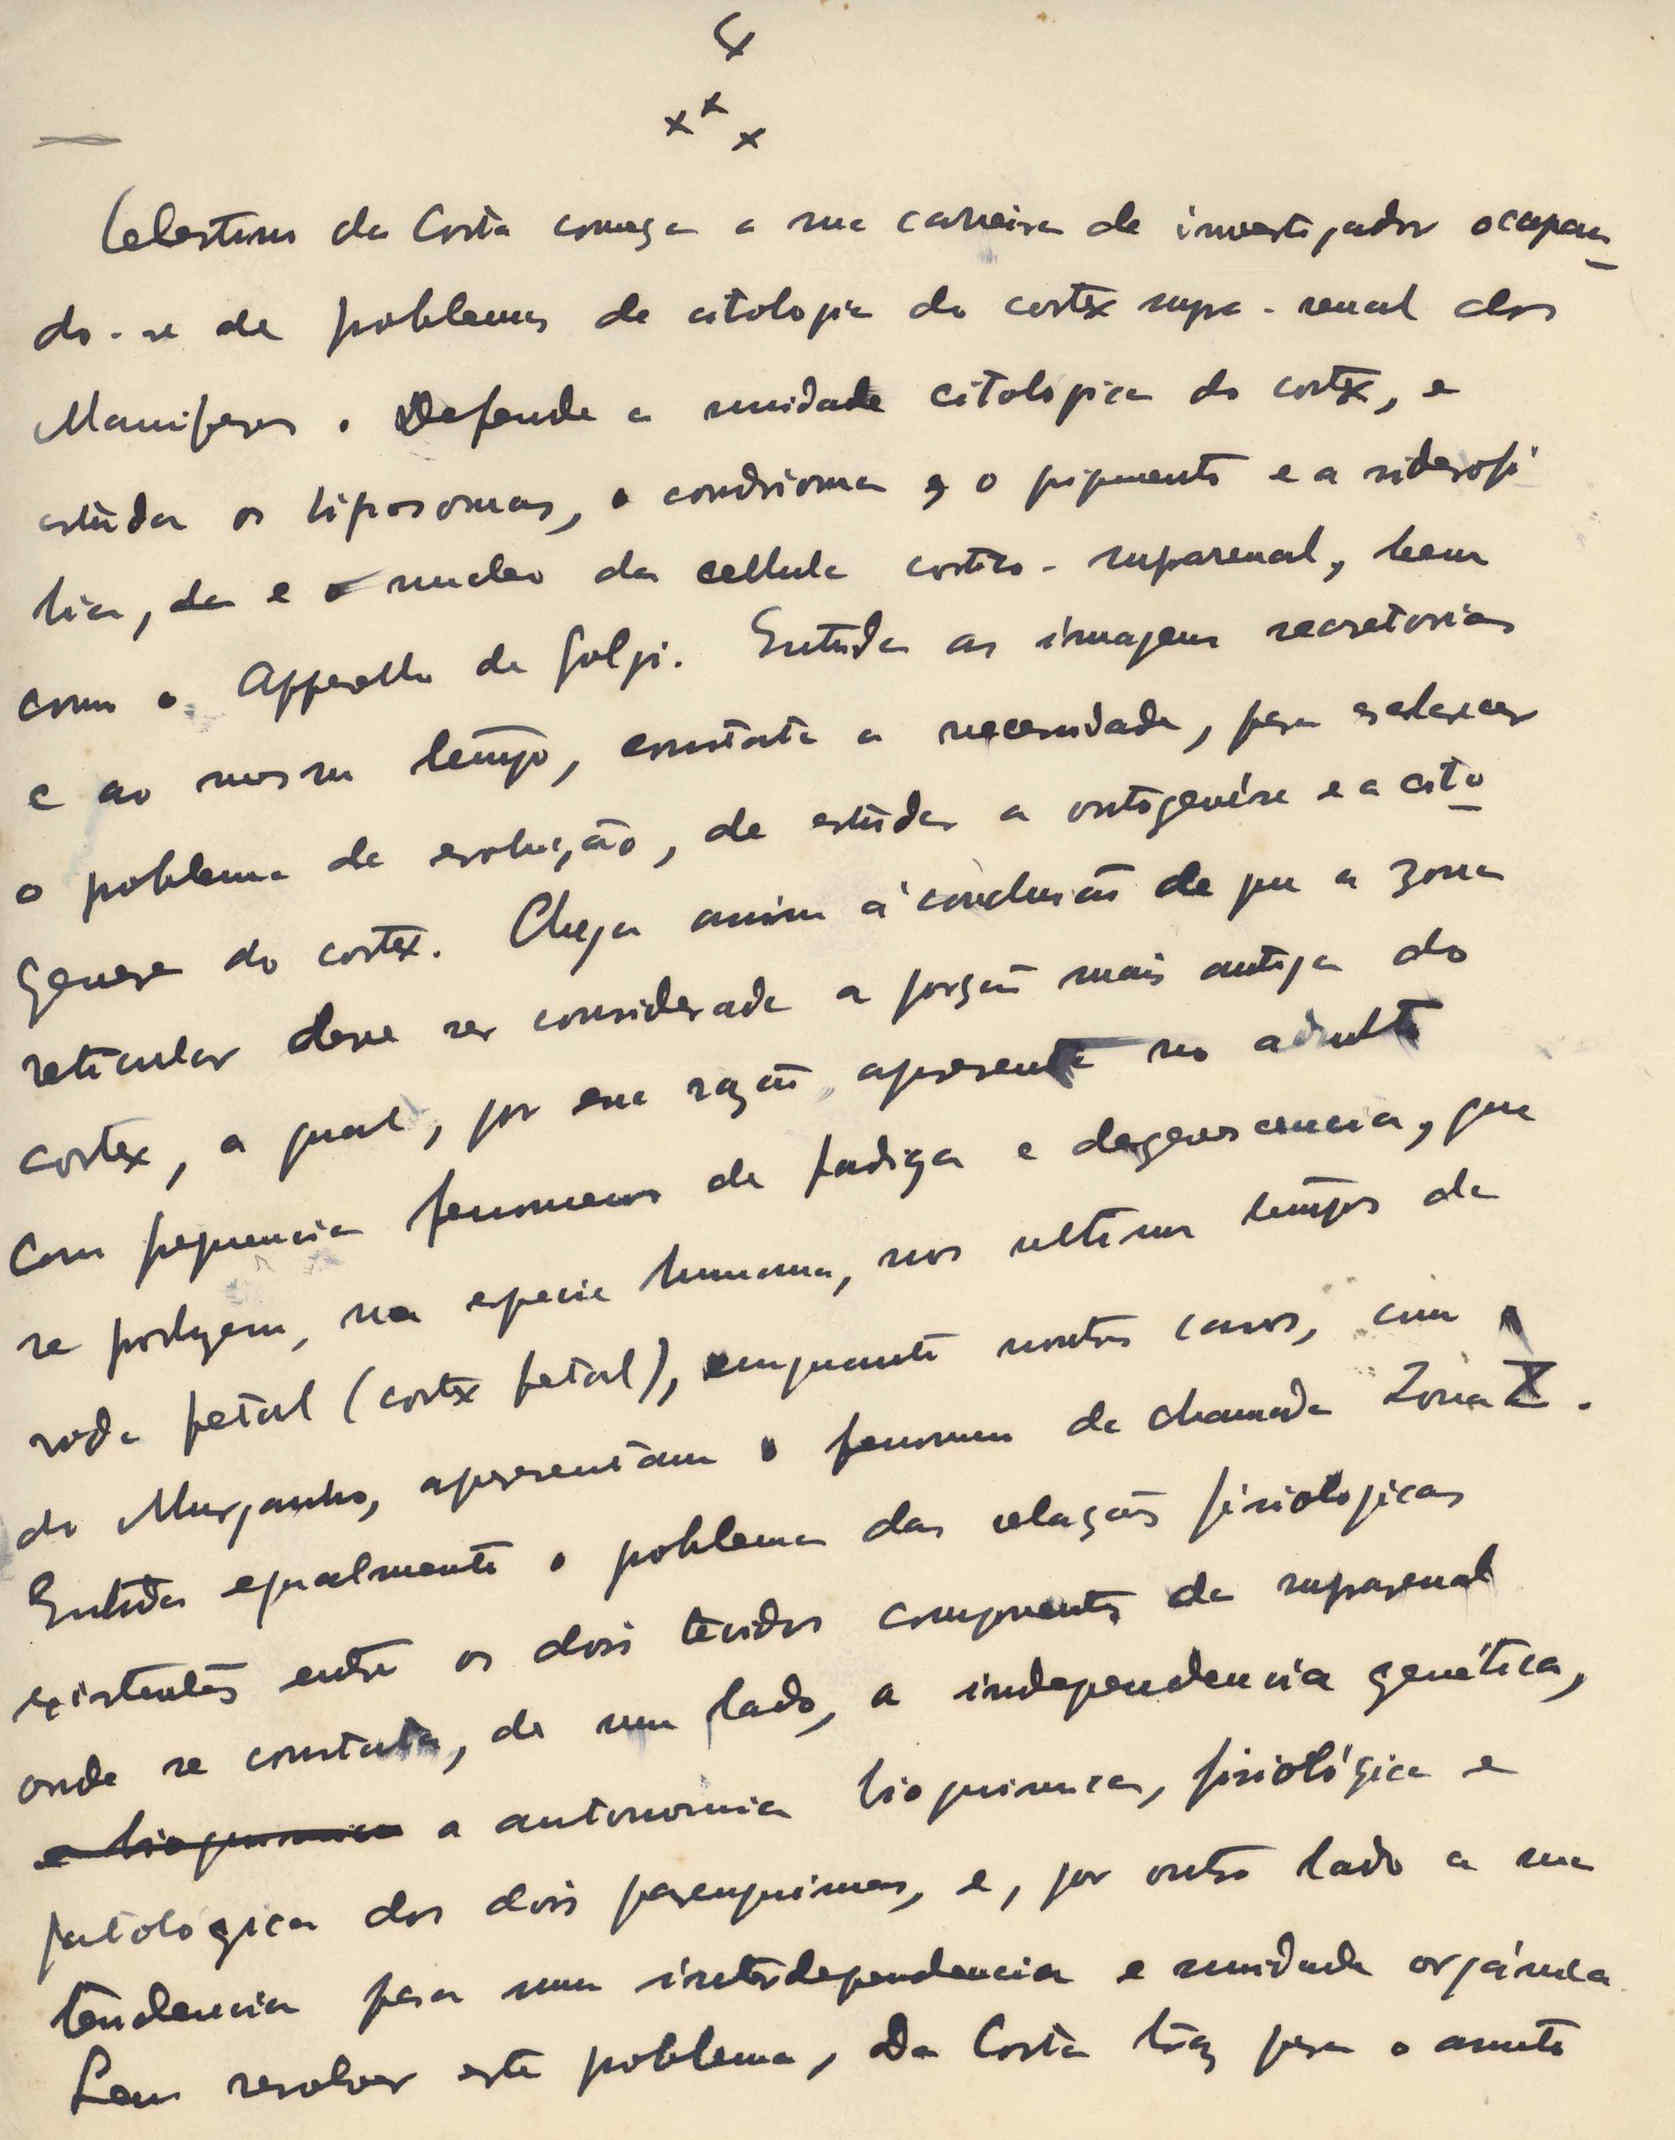 Celestino da Costa começa a sua carreira de investigador ocupan
do-se de problemas de citologia do cortex supra-renal dos
Mamiferos. Defende a unidade citologica do cortex, e
estuda os liposomas, o condrioma, o pigmento e a siderofi
lia, da e o nucleo da cellula cortico-suparenal, bem
como o Apparelho de Golgi. Estuda as imagens secretorias
e ao mesmo tempo, constata a necessidade, para esclarecer
o problema da evolução, de estudar a ontogenése e a cito
genese do cortex. Chega assim á conclusão de que a zona
reticular deve ser considerada a porção mais antiga do
cortex, a qual, por essa razão, apresenta no adulto
com frequencia fenomenos de fadiga e degenerescencia, que
se produzem, na especie humana, nos ultimos tempos da
vida fetal (cortex fetal), emquanto noutros casos, com o
do Murganho, apresentam o fenomeno da chamada Zona X.
Estuda egualmente o problema das relações fisiologicas
existentes entre os dois tecidos componentes da suprarenal
onde se constata, de um lado, a independencia genética,
e bioquimica a autonomia bioquimica, fisiológica e
patologica dos dois parenquimas, e, por outro lado a sua
tendencia para uma interdependencia e unidade orgánica
Sem resolver este problema, Da Costa traz para o assunto